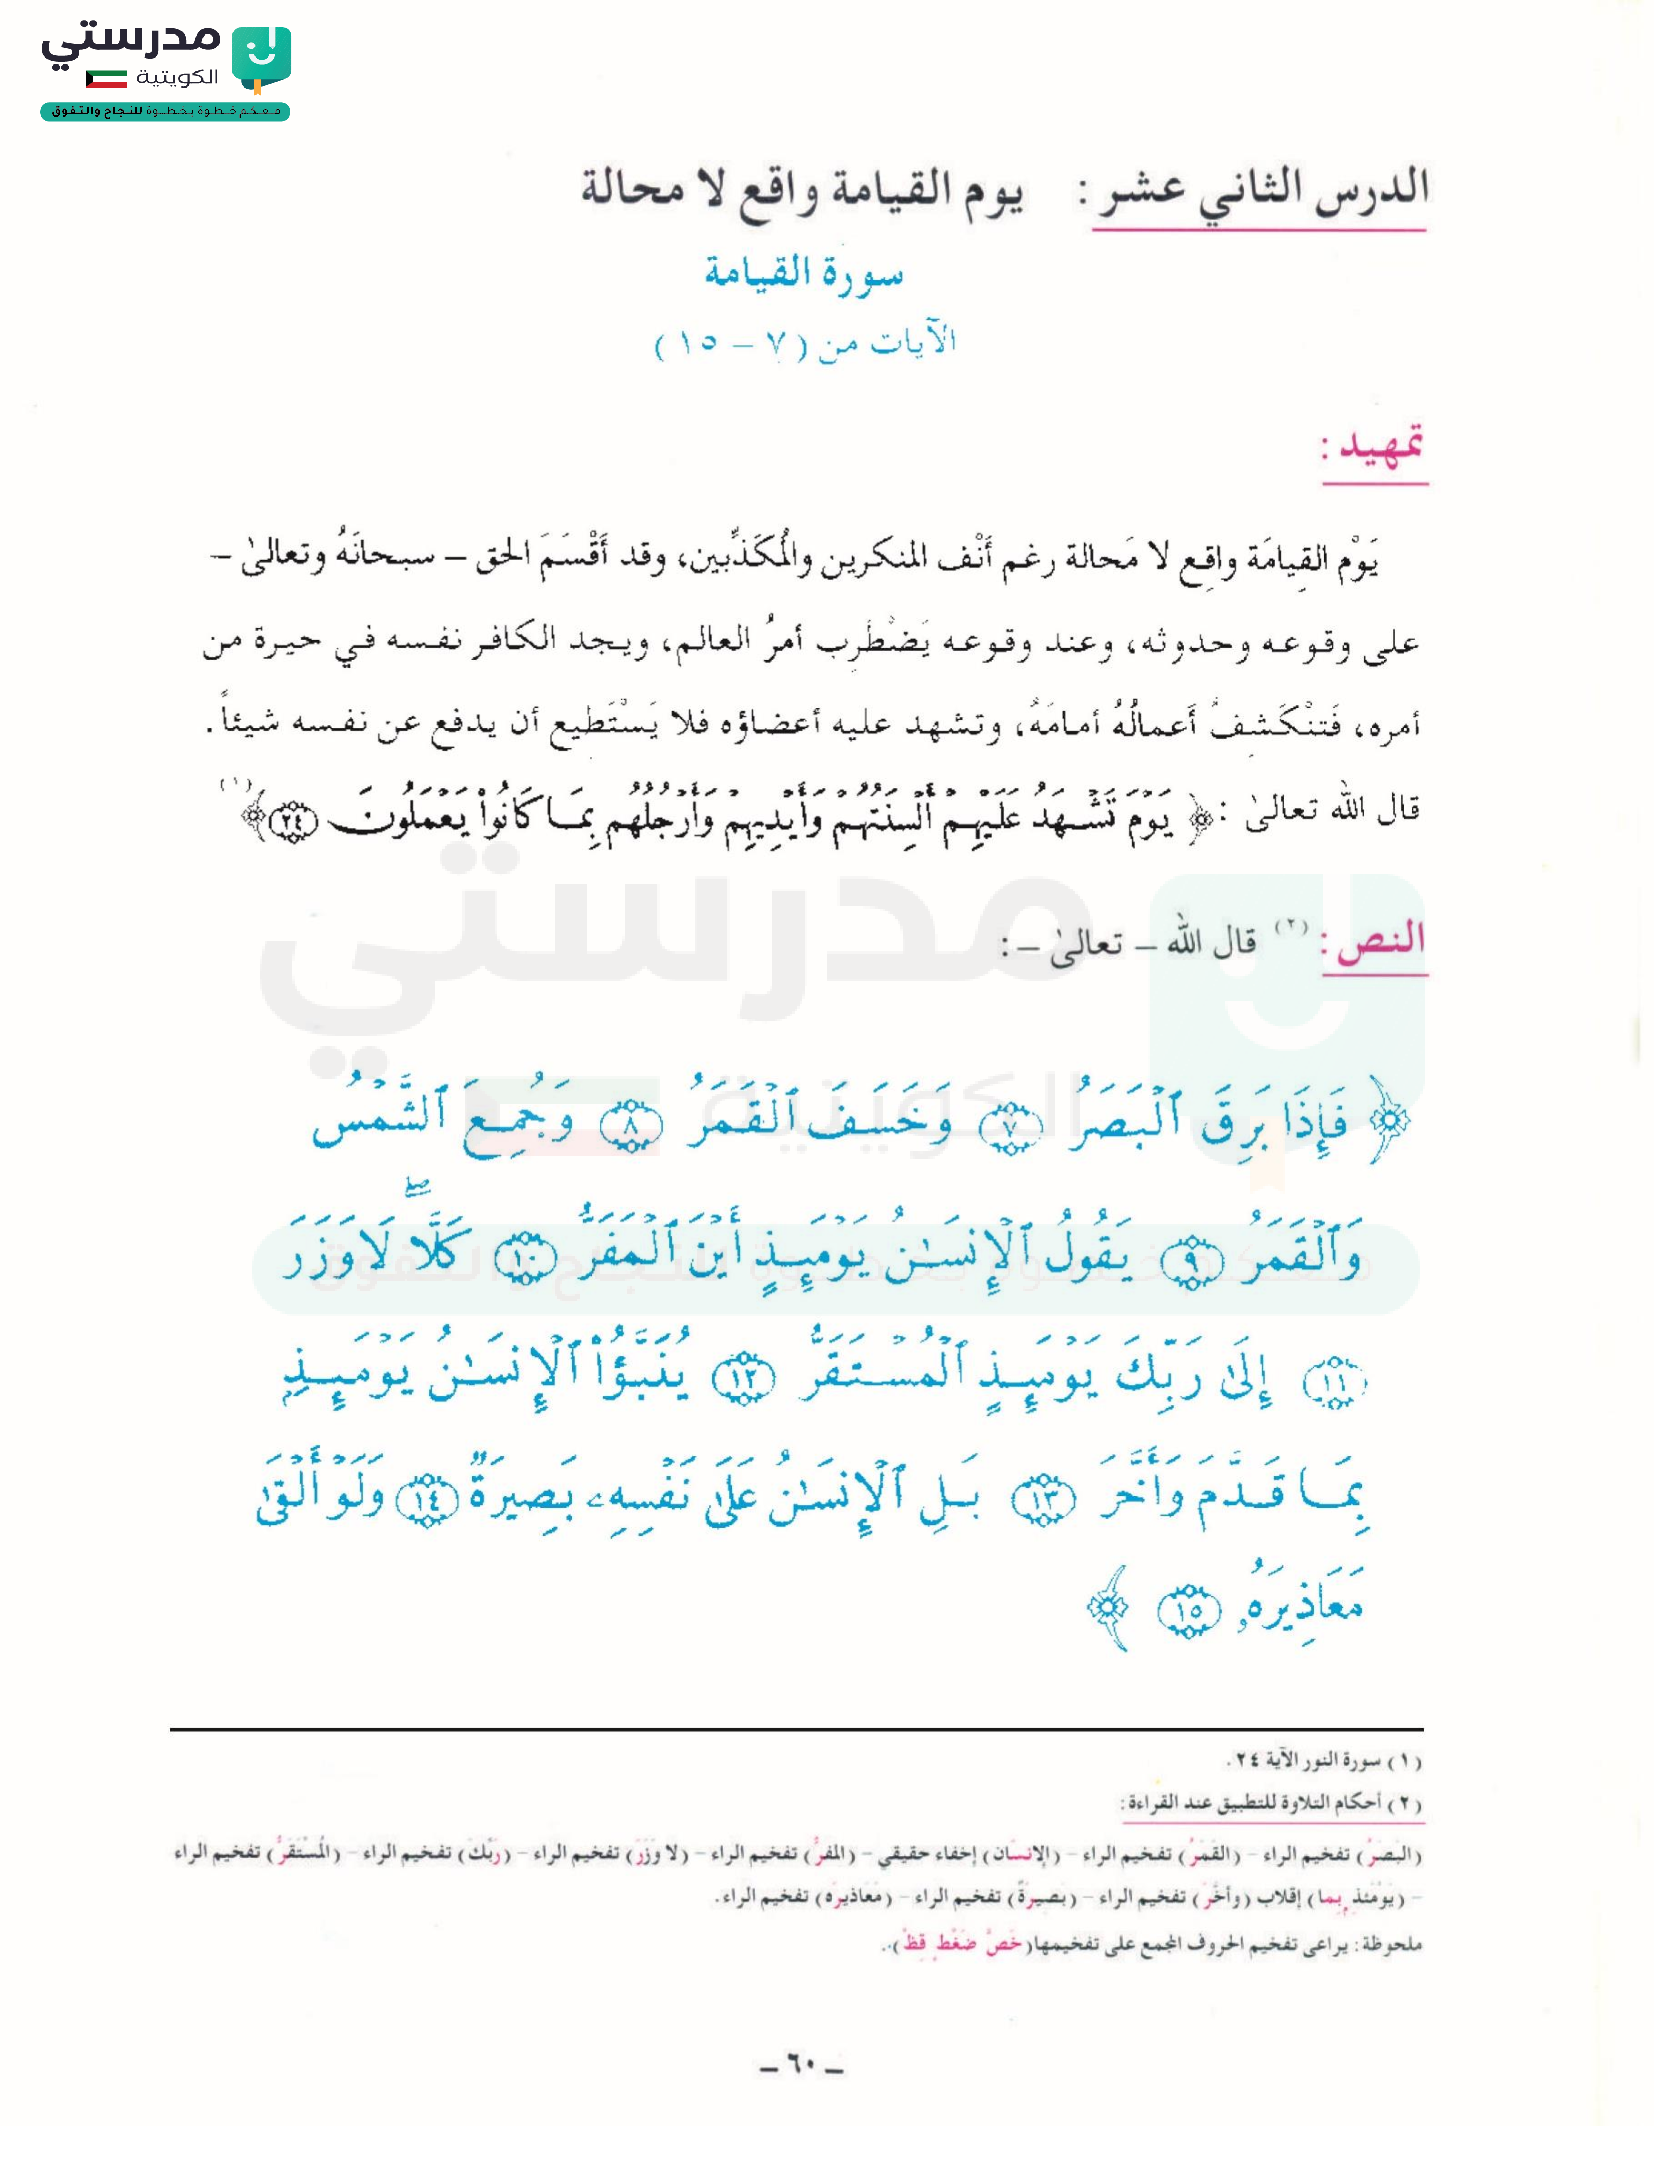 مدرستي
الكويتية
معكم خطوة بخطوة للنجاح والتفوق
الدرس الثاني عشر : يوم القيامة واقع لا محالة
سورة القيامة
الآيات من ( ٧ – ١٥ )
تمهيد :
يَوْم القِيامَة واقِع لا مَحالة رغم أَنْف المنكرين والمُكَذِّبين، وقد أَقْسَمَ الحق – سبحانَهُ وتعالىٰ –
على وقوعه وحدوثه، وعند وقوعه يَضْطَرِب أمرُ العالم، ويجد الكافر نفسه في حيرة من
أمره، فَتنْكَشفُ أَعمالُهُ أمامَهُ، وتشهد عليه أعضاؤه فلا يَسْتَطيع أن يدفع عن نفسه شيئاً.
قال الله تعالىٰ : ﴿ يَوْمَ تَشْهَدُ عَلَيْهِمْ أَلْسِنَتُهُمْ وَأَيْدِيهِمْ وَأَرْجُلُهُم بِمَا كَانُوا۟ يَعْمَلُونَ ٢٤ ﴾ (١)
النص : (٢) قال الله – تعالىٰ – :
﴿ فَإِذَا بَرِقَ ٱلْبَصَرُ ٧ وَخَسَفَ ٱلْقَمَرُ ٨ وَجُمِعَ ٱلشَّمْسُ
وَٱلْقَمَرُ ٩ يَقُولُ ٱلْإِنسَٰنُ يَوْمَئِذٍ أَيْنَ ٱلْمَفَرُّ ١٠ كَلَّاۖ لَا وَزَرَ
١١ إِلَىٰ رَبِّكَ يَوْمَئِذٍ ٱلْمُسْتَقَرُّ ١٢ يُنَبَّؤُا۟ ٱلْإِنسَٰنُ يَوْمَئِذِۭ
بِمَا قَدَّمَ وَأَخَّرَ ١٣ بَلِ ٱلْإِنسَٰنُ عَلَىٰ نَفْسِهِۦ بَصِيرَةٌ ١٤ وَلَوْ أَلْقَىٰ
مَعَاذِيرَهُۥ ١٥ ﴾
(١) سورة النور الآية ٢٤.
(٢) أحكام التلاوة للتطبيق عند القراءة:
(البَصَرُ) تفخيم الراء – (القَمَرُ) تفخيم الراء – (الإنسَان) إخفاء حقيقي – (المفَرُّ) تفخيم الراء – (لا وَزَرَ) تفخيم الراء – (رَبِّكَ) تفخيم الراء – (المُسْتَقَرُّ) تفخيم الراء
– (يَوْمَئذ بِما) إقلاب (وأخَّرَ) تفخيم الراء – (بَصيرَةٌ) تفخيم الراء – (مَعَاذيرَه) تفخيم الراء.
ملحوظة: يراعى تفخيم الحروف المجمع على تفخيمها (خُصَّ ضَغْطٍ قِظْ).
– ٦٠ –